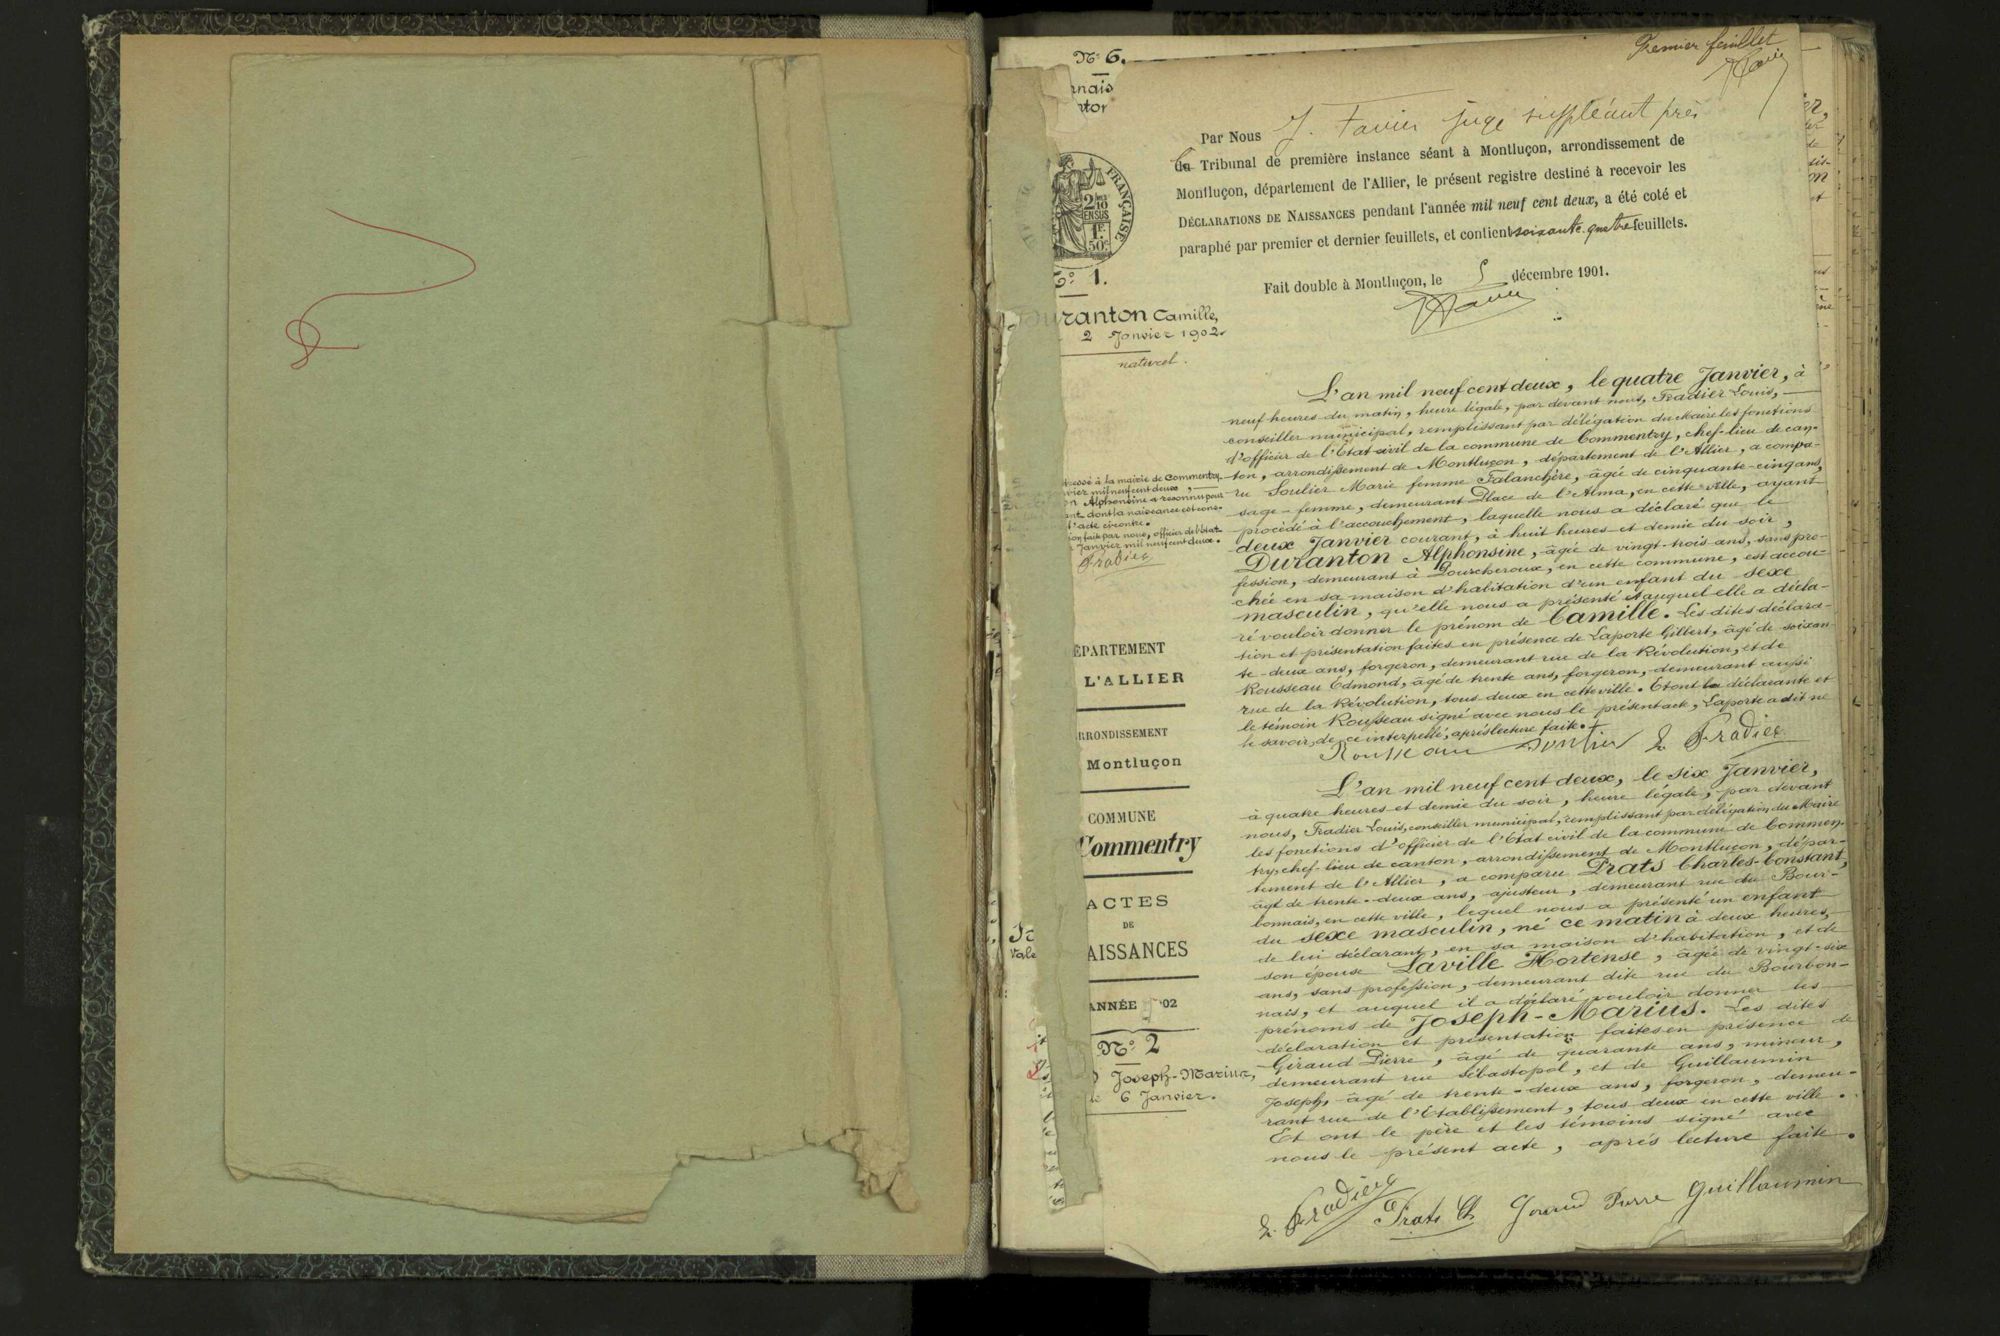 Premier feuillet
N° 6.
Par Nous J. Favier juge suppléant près
le Tribunal de première instance séant à Montluçon, arrondissement de
Montluçon, département de l'Allier, le présent registre destiné à recevoir les
DÉCLARATIONS DE NAISSANCES pendant l'année mil neuf cent deux, a été coté et
paraphé par premier et dernier feuillets, et contient soixante-quatre feuillets.
Fait double à Montluçon, le 5 décembre 1901.
FRANÇAISE
2/10
EN SUS
1F.
50c
N° 1.
Duranton Camille,
2 Janvier 1902.
naturel.
L'an mil neuf cent deux, le quatre Janvier, à
neuf heures du matin, heure légale, par devant nous, Fradier Louis,
conseiller municipal, remplissant par délégation du Maire les fonctions
d'officier de l'Etat-civil de la commune de Commentry, chef-lieu de can-
ton, arrondissement de Montluçon, département de l'Allier, a compa-
ru Soulier Marie femme Talanchère, âgée de cinquante-cinq ans,
sage-femme, demeurant Place de l'Alma, en cette ville, ayant
procédé à l'accouchement, laquelle nous a déclaré que le
deux Janvier courant, à huit heures et demie du soir,
Duranton Alphonsine, âgée de vingt-trois ans, sans pro-
fession, demeurant à Pourcheroux, en cette commune, est accou-
chée en sa maison d'habitation d'un enfant du sexe
masculin, qu'elle nous a présenté et auquel elle a décla-
ré vouloir donner le prénom de Camille. Les dites déclara-
tion et présentation faites en présence de Laporte Gilbert, âgé de soixan-
te-deux ans, forgeron, demeurant rue de la Révolution, et de
Rousseau Edmond, âgé de trente ans, forgeron, demeurant aussi
rue de la Révolution, tous deux en cette ville. Et ont la déclarante et
le témoin Rousseau signé avec nous le présent acte, Laporte a dit ne
le savoir, de ce interpellé, après lecture faite.
Rousseau L. Fradier
à la mairie de Commentry
vier mil neuf cent deux,
Alphonsine a reconnu pour
dont la naissance est cons-
l'acte ci-contre.
fait par nous, officier de l'état
Janvier mil neuf cent deux.
Fradier
ÉPARTEMENT
L'ALLIER
RRONDISSEMENT
Montluçon
COMMUNE
Commentry
ACTES
DE
AISSANCES
ANNÉE 02
N° 2
Joseph-Marius,
le 6 Janvier.
L'an mil neuf cent deux, le six Janvier,
à quatre heures et demie du soir, heure légale, par devant
nous, Fradier Louis, conseiller municipal, remplissant par délégation du Maire
les fonctions d'officier de l'Etat civil de la commune de Commen-
try, chef-lieu de canton, arrondissement de Montluçon, dépar-
tement de l'Allier, a comparu Prats Charles-Constant,
âgé de trente-deux ans, ajusteur, demeurant rue du Bour-
bonnais, en cette ville, lequel nous a présenté un enfant
du sexe masculin, né ce matin à deux heures,
de lui déclarant, en sa maison d'habitation, et de
son épouse Laville Hortense, âgée de vingt-six
ans, sans profession, demeurant dite rue du Bourbon-
nais, et auquel il a déclaré vouloir donner les
prénoms de Joseph-Marius. Les dites
déclaration et présentation faites en présence de
Giraud Pierre, âgé de quarante ans, mineur,
demeurant rue Sébastopol, et de Guillaumin
Joseph, âgé de trente-deux ans, forgeron, demeu-
rant rue de l'Etablissement, tous deux en cette ville.
Et ont le père et les témoins signé avec
nous le présent acte, après lecture faite.
L. Fradier Prats Ch Giraud Pierre Guillaumin